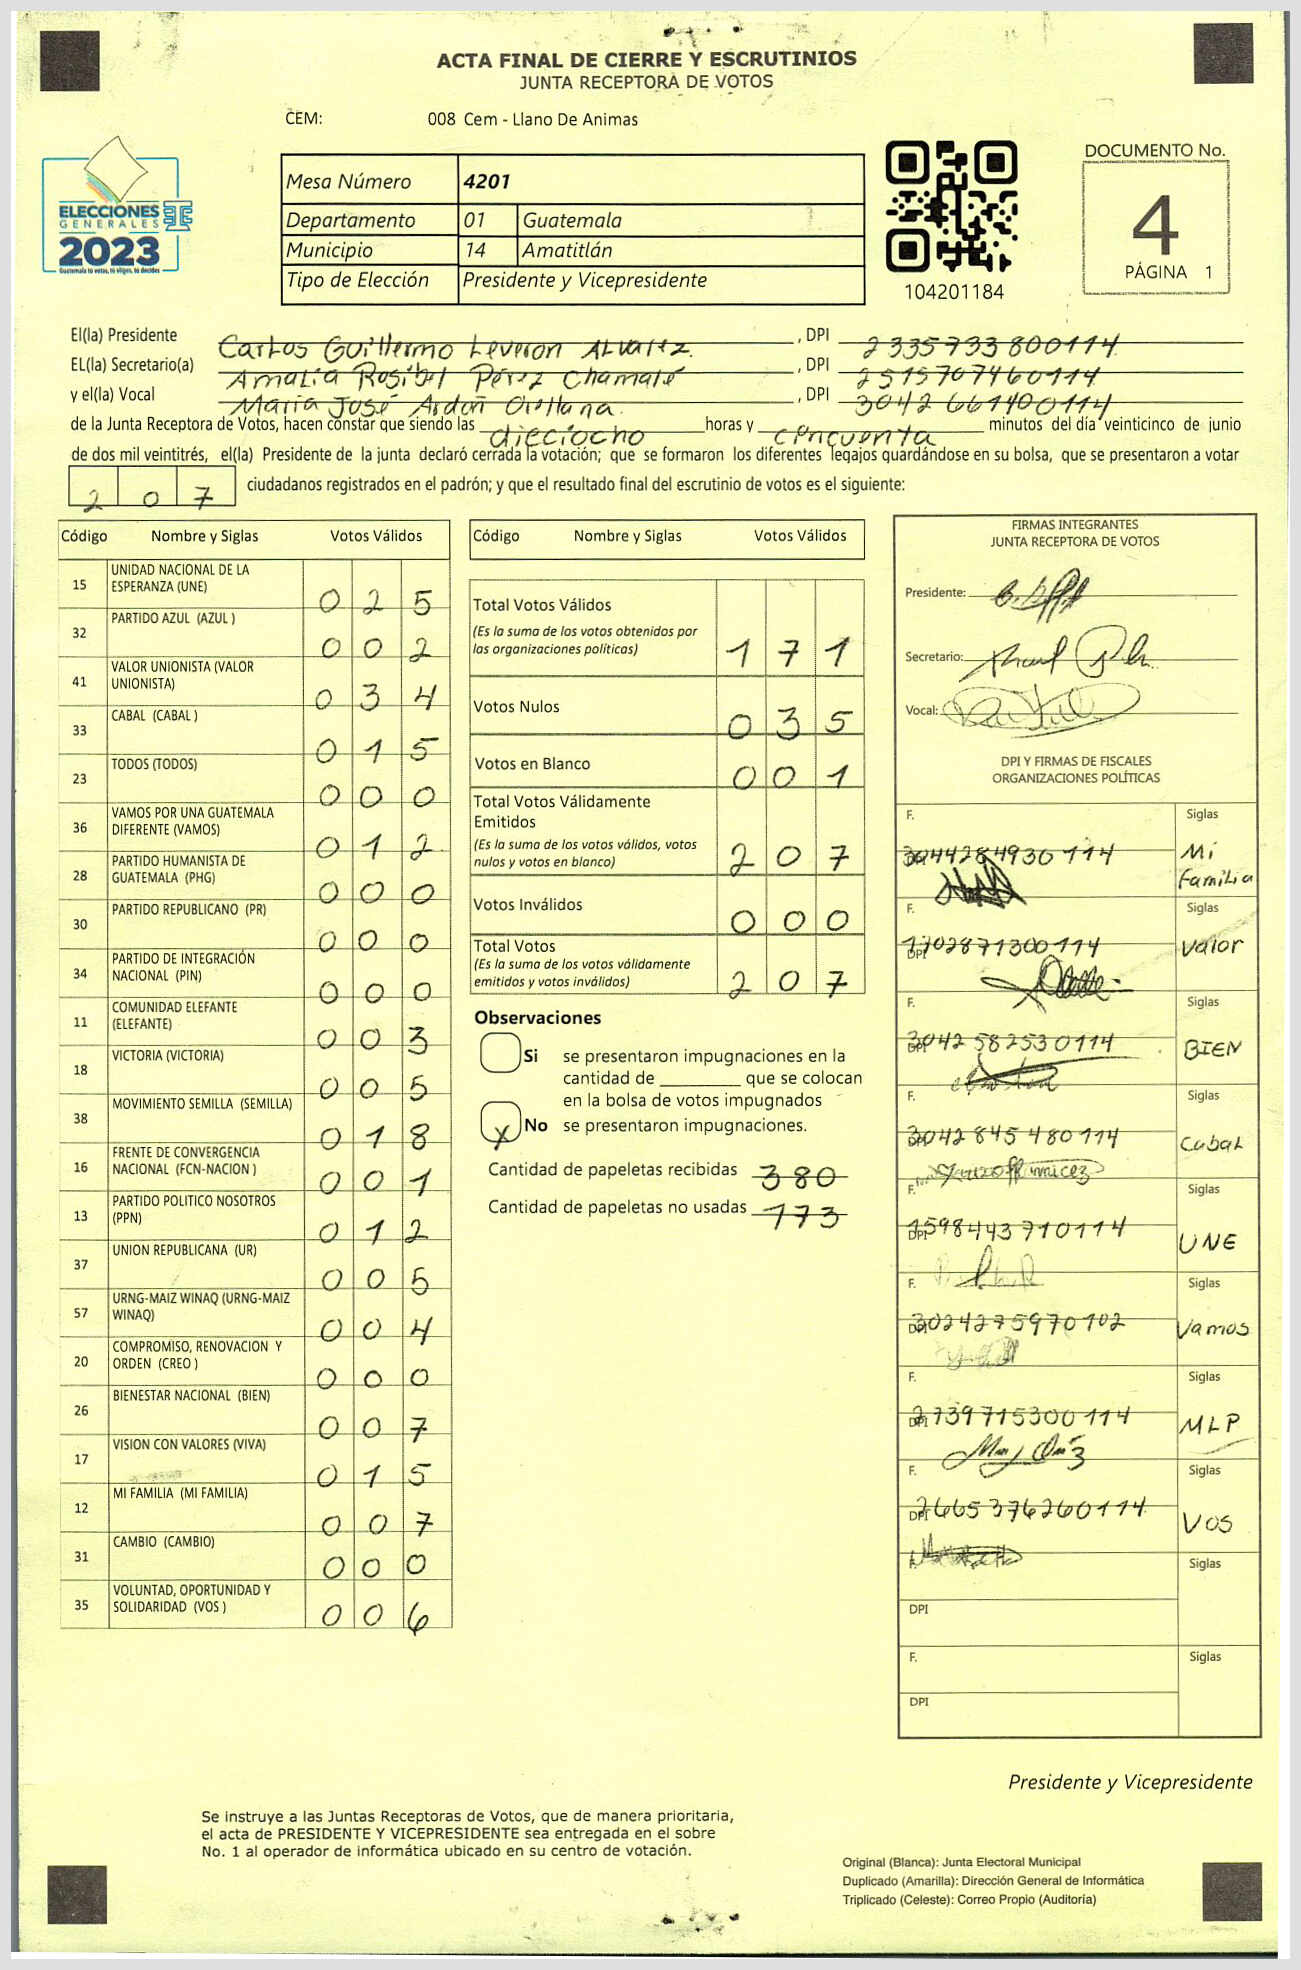 ACTA FINAL DE CIERRE Y ESCRUTINIOS
JUNTA RECEPTORA DE VOTOS
CEM: 008 Cem - Llano De Animas
ELECCIONES
GENERALES
2023
Guatemala tú votas, tú eliges, tú decides
Mesa Número 4201
Departamento 01 Guatemala
Municipio 14 Amatitlán
Tipo de Elección Presidente y Vicepresidente
104201184
DOCUMENTO No.
4
PÁGINA 1
El(la) Presidente Carlos Guillermo Leveron Alvarez , DPI 2335733800114
EL(la) Secretario(a) Amalia Rosibel Pérez Chamalé , DPI 2515707460114
y el(la) Vocal María José Ardón Orellana , DPI 3042661400114
de la Junta Receptora de Votos, hacen constar que siendo las dieciocho horas y cincuenta minutos del día veinticinco de junio
de dos mil veintitrés, el(la) Presidente de la junta declaró cerrada la votación; que se formaron los diferentes legajos guardándose en su bolsa, que se presentaron a votar
207 ciudadanos registrados en el padrón; y que el resultado final del escrutinio de votos es el siguiente:
Código Nombre y Siglas Votos Válidos
15 UNIDAD NACIONAL DE LA ESPERANZA (UNE) 025
32 PARTIDO AZUL (AZUL ) 002
41 VALOR UNIONISTA (VALOR UNIONISTA) 034
33 CABAL (CABAL ) 015
23 TODOS (TODOS) 000
36 VAMOS POR UNA GUATEMALA DIFERENTE (VAMOS) 012
28 PARTIDO HUMANISTA DE GUATEMALA (PHG) 000
30 PARTIDO REPUBLICANO (PR) 000
34 PARTIDO DE INTEGRACIÓN NACIONAL (PIN) 000
11 COMUNIDAD ELEFANTE (ELEFANTE) 003
18 VICTORIA (VICTORIA) 005
38 MOVIMIENTO SEMILLA (SEMILLA) 018
16 FRENTE DE CONVERGENCIA NACIONAL (FCN-NACION ) 001
13 PARTIDO POLITICO NOSOTROS (PPN) 012
37 UNION REPUBLICANA (UR) 005
57 URNG-MAIZ WINAQ (URNG-MAIZ WINAQ) 004
20 COMPROMISO, RENOVACION Y ORDEN (CREO ) 000
26 BIENESTAR NACIONAL (BIEN) 007
17 VISION CON VALORES (VIVA) 015
12 MI FAMILIA (MI FAMILIA) 007
31 CAMBIO (CAMBIO) 000
35 VOLUNTAD, OPORTUNIDAD Y SOLIDARIDAD (VOS ) 006
Código Nombre y Siglas Votos Válidos
Total Votos Válidos 171
(Es la suma de los votos obtenidos por
las organizaciones políticas)
Votos Nulos 035
Votos en Blanco 001
Total Votos Válidamente
Emitidos 207
(Es la suma de los votos válidos, votos
nulos y votos en blanco)
Votos Inválidos 000
Total Votos 207
(Es la suma de los votos válidamente
emitidos y votos inválidos)
Observaciones
Si se presentaron impugnaciones en la
cantidad de ________ que se colocan
en la bolsa de votos impugnados
X No se presentaron impugnaciones.
Cantidad de papeletas recibidas 380
Cantidad de papeletas no usadas 173
FIRMAS INTEGRANTES
JUNTA RECEPTORA DE VOTOS
Presidente:
Secretario:
Vocal:
DPI Y FIRMAS DE FISCALES
ORGANIZACIONES POLÍTICAS
F. Siglas
3044284930114 Mi Familia
F. Siglas
DPI 1702871300114 Valor
F. Siglas
DPI 3042582530114 BIEN
F. Siglas
DPI 3042845480114 Cabal
F. Siglas
DPI 1598443710114 UNE
F. Siglas
DPI 3024275970102 Vamos
F. Siglas
DPI 2739715300114 MLP
F. Siglas
DPI 2665376260114 VOS
F. Siglas
DPI
F. Siglas
DPI
Presidente y Vicepresidente
Se instruye a las Juntas Receptoras de Votos, que de manera prioritaria,
el acta de PRESIDENTE Y VICEPRESIDENTE sea entregada en el sobre
No. 1 al operador de informática ubicado en su centro de votación.
Original (Blanca): Junta Electoral Municipal
Duplicado (Amarilla): Dirección General de Informática
Triplicado (Celeste): Correo Propio (Auditoría)